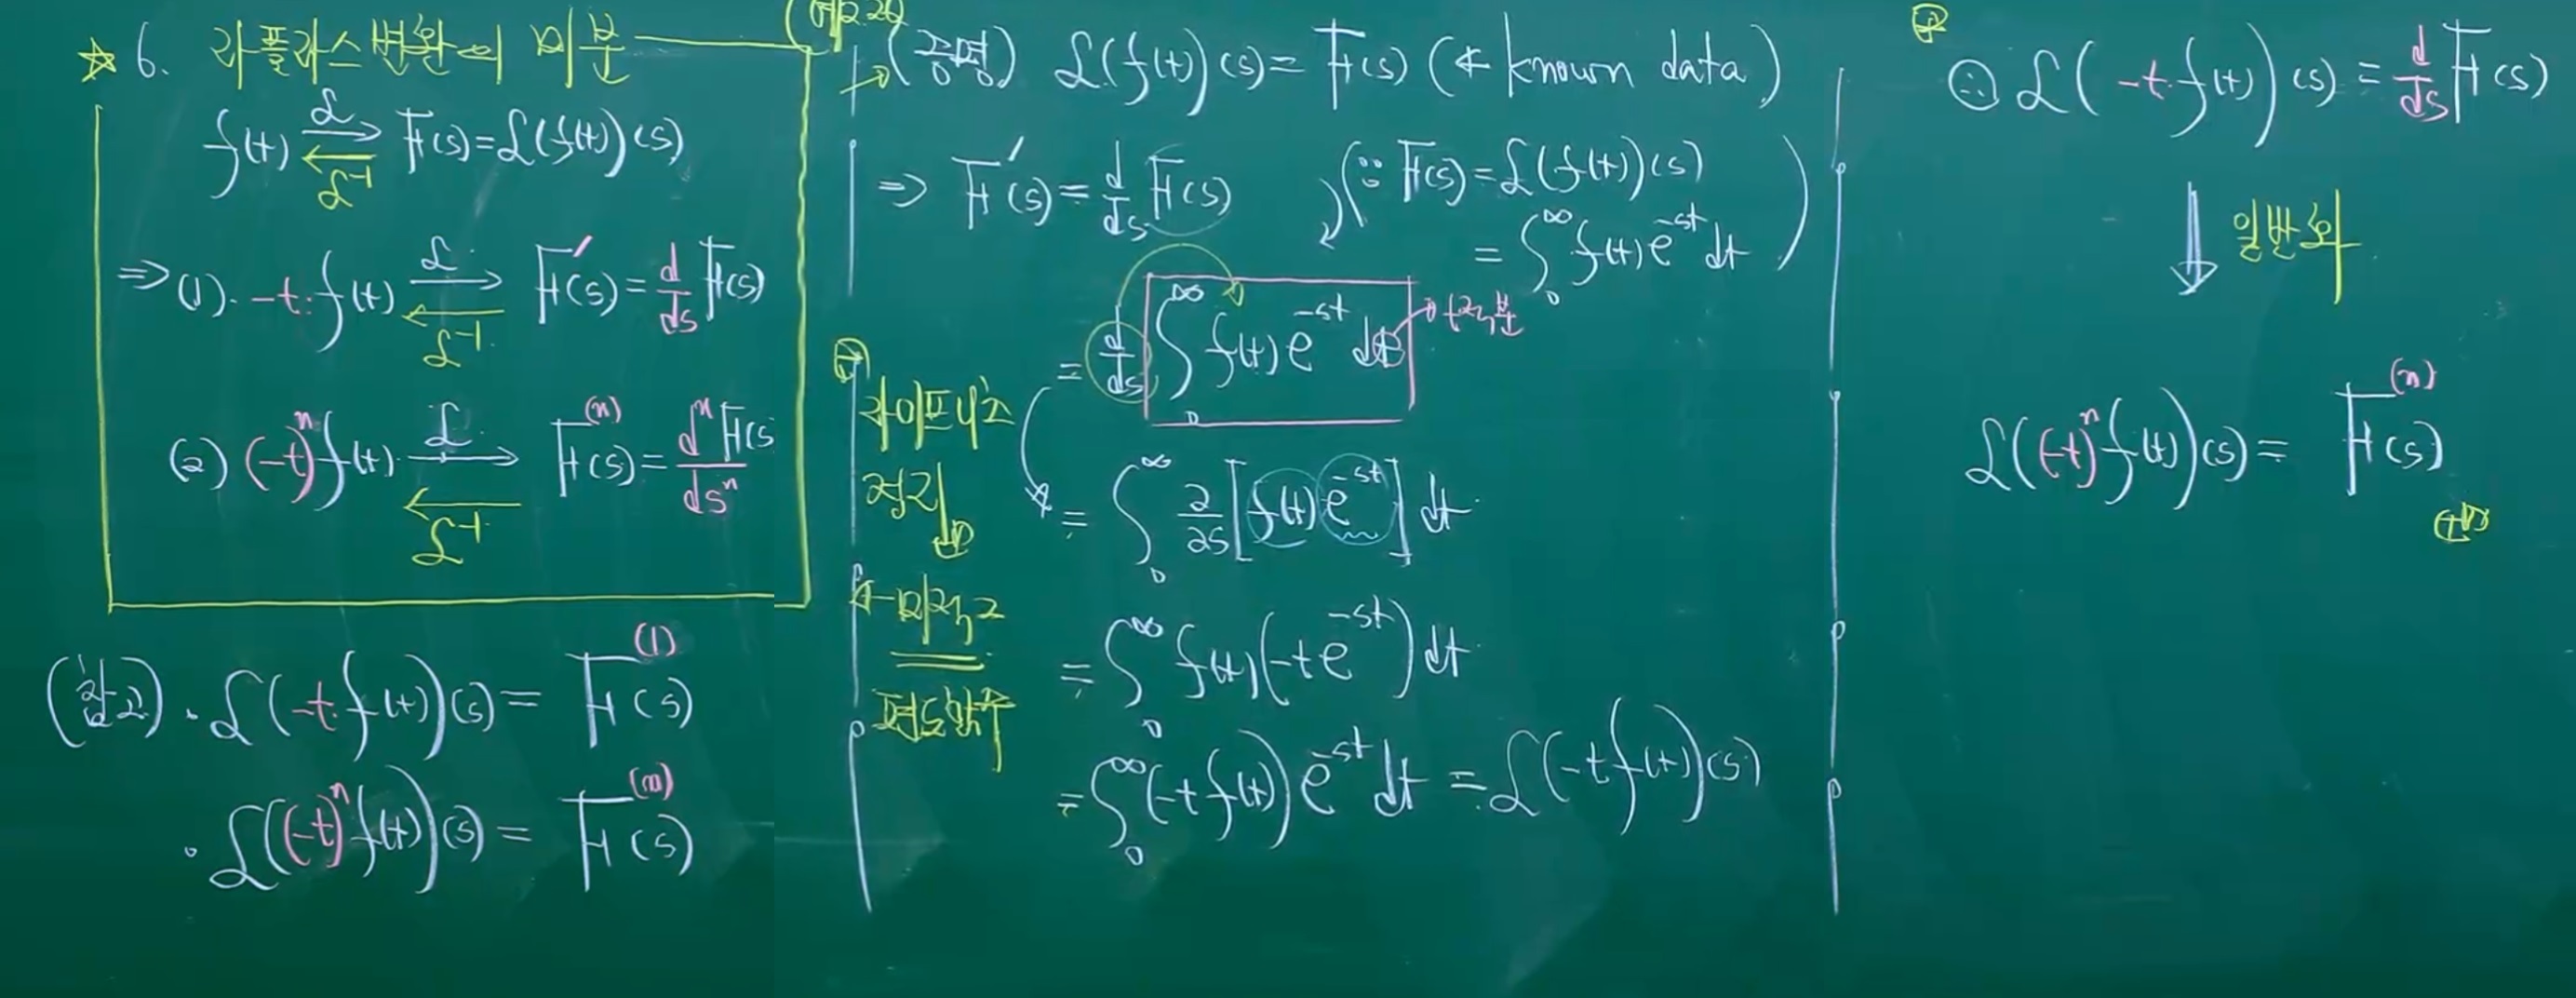 ☆ 6. 라플라스 변환의 미분
f(t) ⇄ F(s) = ℒ(f(t))(s)
ℒ
ℒ⁻¹
⇒ (1). -t·f(t) ⇄ F′(s) = d/ds F(s)
ℒ
ℒ⁻¹
(2) (-t)ⁿ f(t) ⇄ F⁽ⁿ⁾(s) = dⁿF(s / dsⁿ
ℒ
ℒ⁻¹
· ℒ(-t·f(t))(s) = F⁽¹⁾(s)
· ℒ((-t)ⁿ f(t))(s) = F⁽ⁿ⁾(s)
(증명) ℒ(f(t))(s) = F(s) (← known data)
⇒ F′(s) = d/ds F(s)
(∵ F(s) = ℒ(f(t))(s)
= ∫₀^∞ f(t) e^{-st} dt)
= d/ds ∫₀^∞ f(t) e^{-st} dt → t적분
라이프니츠
정리
= ∫₀^∞ ∂/∂s [f(t) e^{-st}] dt
편도함수
= ∫₀^∞ f(t)(-t e^{-st}) dt
= ∫₀^∞ (-t f(t)) e^{-st} dt = ℒ(-t f(t))(s)
∴ ℒ(-t·f(t))(s) = d/ds F(s)
↓ 일반화
ℒ((-t)ⁿ f(t))(s) = F⁽ⁿ⁾(s)